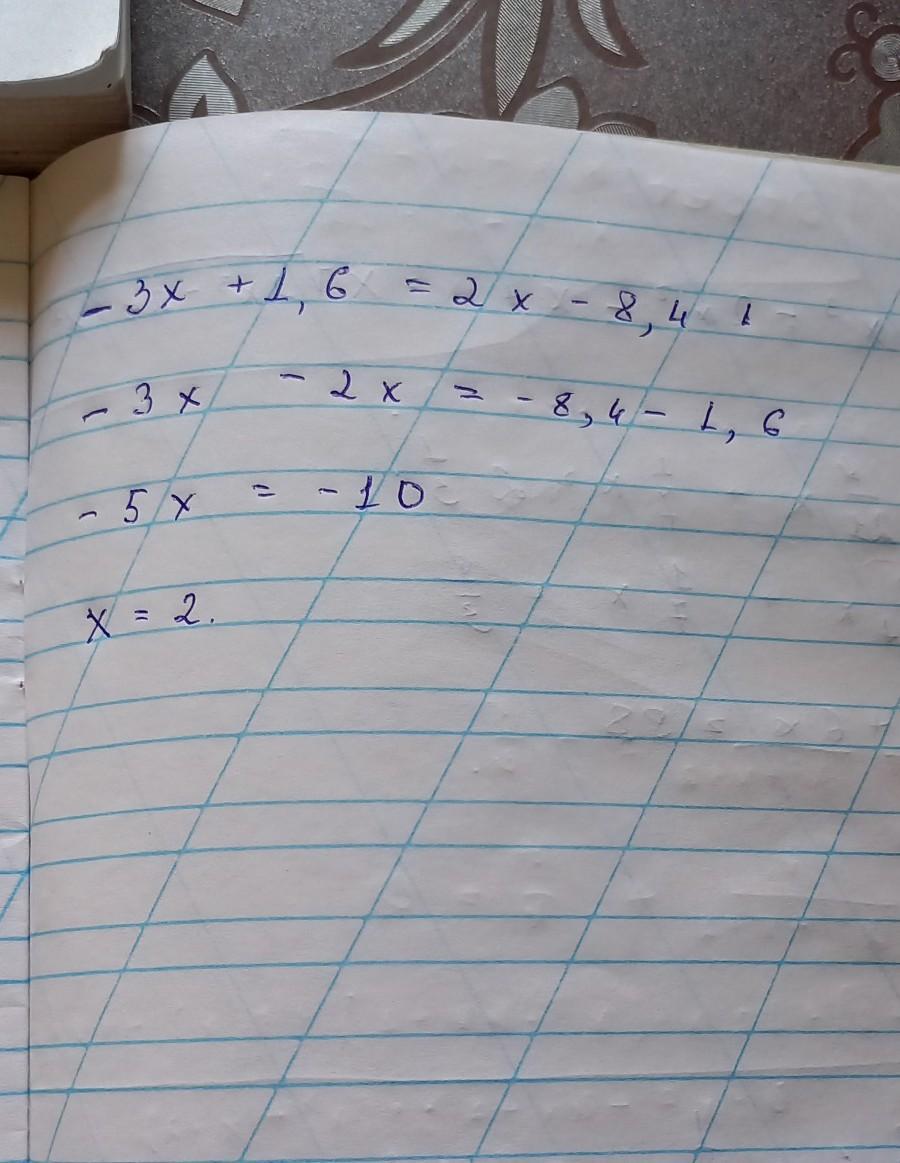 - 3x + 1,6 = 2x - 8,4 1
- 3x - 2x = - 8,4 - 1,6
- 5x = - 10
x = 2.